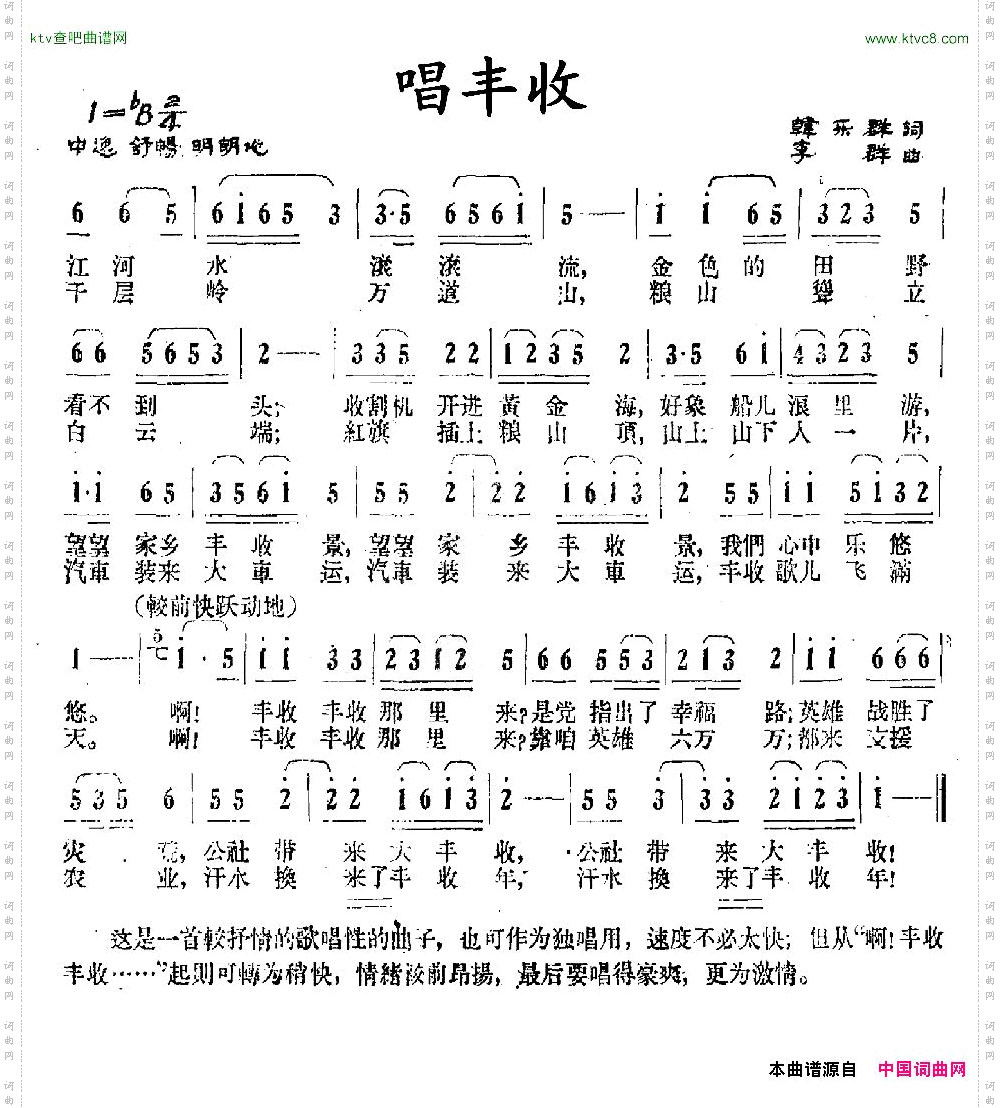 ktv查吧曲谱网 www.ktvc8.com
唱丰收
1=♭B 2/4
中速 舒暢 明朗地
韓乐群 词
李 群 曲
6 6 5 | 6 i 6 5 3 | 3·5 6 5 6 i | 5 — | i i 6 5 | 3 2 3 5
江河水 滚滚流, 金色的田野
千层岭 万道山, 粮山聳立
6 6 5 6 5 3 | 2 — | 3 3 5 2 2 | 1 2 3 5 2 | 3·5 6 i | 4 3 2 3 5
看不到头; 收割机 开进黄金海, 好象船儿浪里游,
白云端; 紅旗 插上粮山頂, 山上山下人一片,
i·i 6 5 | 3 5 6 i 5 | 5 5 2 | 2 2 i 6 i 3 | 2 5 5 | i i 5 i 3 2
望望家乡丰收景, 望望家乡丰收景, 我們心中乐悠
汽車装来大車运, 汽車装来大車运, 丰收歌儿飞滿
(較前快跃动地)
1 — | i·5 | i i 3 3 | 2 3 i 2 5 | 6 6 5 5 3 | 2 i 3 2 | i i 6 6 6
悠。 啊! 丰收丰收那里来? 是党指出了幸福路; 英雄战胜了
天。 啊! 丰收丰收那里来? 靠咱英雄六万万; 都来支援
5 3 5 6 | 5 5 2 | 2 2 i 6 i 3 | 2 — | 5 5 3 | 3 3 2 i 2 3 | i —
灾荒, 公社带来大丰收, 公社带来大丰收!
农业, 汗水換来了丰收年, 汗水換来了丰收年!
这是一首較抒情的歌唱性的曲子, 也可作为独唱用, 速度不必太快; 但从“啊! 丰收
丰收……”起則可轉为稍快, 情緒較前昂揚, 最后要唱得豪爽, 更为激情。
本曲谱源自 中国词曲网